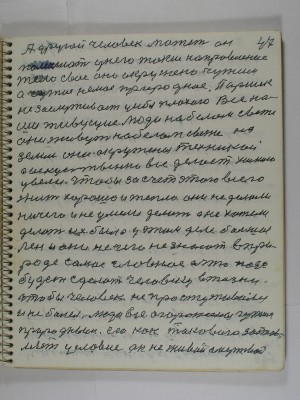 А другой человек может он 47
у него такое направление
тело свое оно окружено чужим
а чужие немое природное. Парник
не заслуживает чтобы плохого Все на-
ши живущие люди на белом свете
они живут на белом свете на
земле они окружены техникой
искусственно все делают много
увели. Чтобы за счет этого всего
жить хорошо и тепло они не делали
ничего и не умели делать они хотели
делать их было у этом деле болшая
лен и они нечего не знают в при
роде самое главное это надо
будет сделат человеку в жизни.
чтобы человек не простуживался
и не болел. люди все огорожены чужим
природным. его как такового застав-
ляет условие он не живой а мертвой